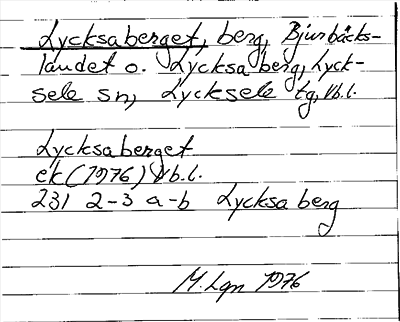 Lycksaberget, berg, Bjurbäcks-
landet o. Lycksa berg, Lyck-
sele sn, Lycksele tg, Vb.l.
Lycksaberget
ek (1976) Vb.l.
231 2-3 a-b Lycksa berg
M. Lgn 1976